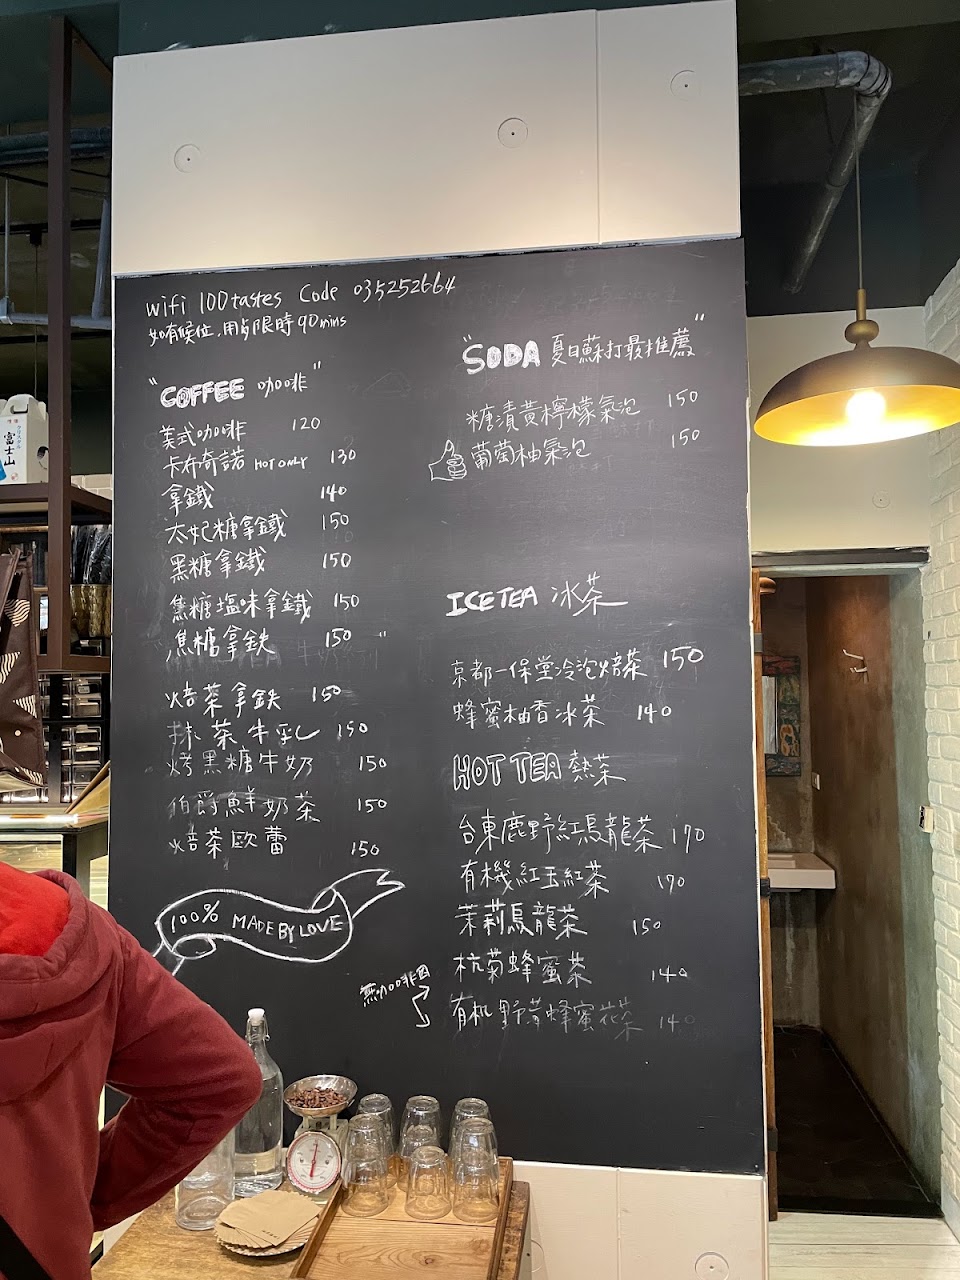 wifi 100tastes Code 035252664
如有候位,用餐限時90mins
"COFFEE 咖啡"
美式咖啡 120
卡布奇諾 HOT ONLY 130
拿鐵 140
太妃糖拿鐵 150
黑糖拿鐵 150
焦糖塩味拿鐵 150
焦糖拿鉄 150
焙茶拿鉄 150
抹茶牛乳 150
烤黑糖牛奶 150
伯爵鮮奶茶 150
焙茶歐蕾 150
100% MADE BY LOVE
"SODA 夏日蘇打最推薦"
糖漬黃檸檬氣泡 150
葡萄柚氣泡 150
ICE TEA 冰茶
京都一保堂冷泡焙茶 150
蜂蜜柚香冰茶 140
HOT TEA 熱茶
台東鹿野紅烏龍茶 170
有機紅玉紅茶 170
茉莉烏龍茶 150
杭菊蜂蜜茶 140
無咖啡因
有机野薄蜂蜜花茶 140
富士山